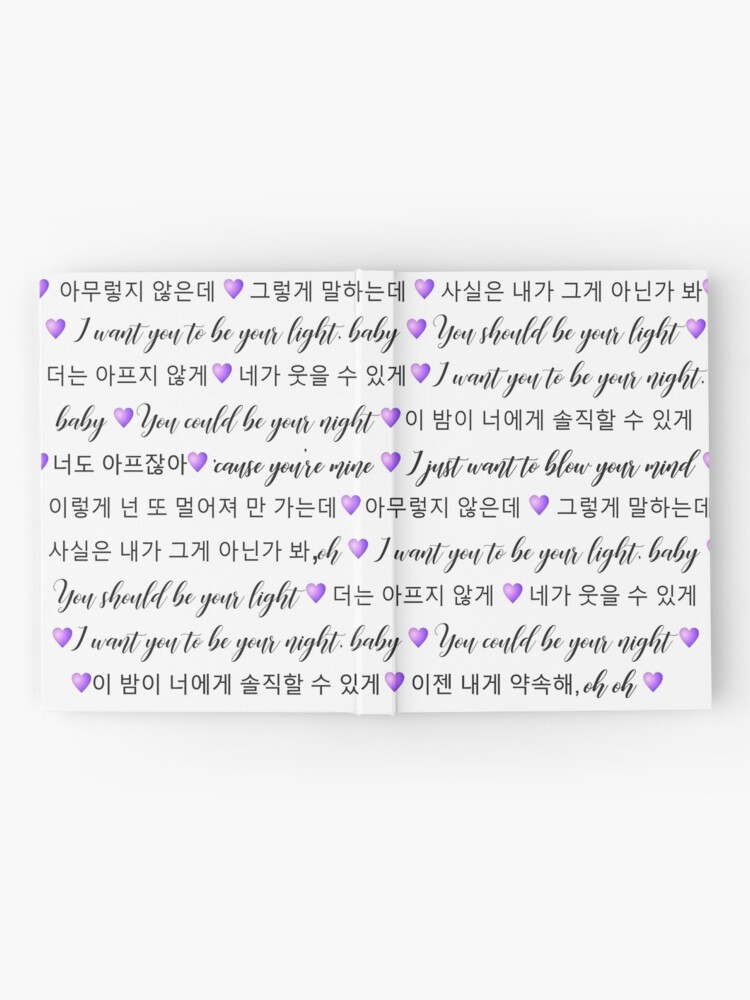 💜 아무렇지 않은데 💜 그렇게 말하는데 💜 사실은 내가 그게 아닌가 봐💜
💜 I want you to be your light. baby 💜 You should be your light 💜
더는 아프지 않게💜 네가 웃을 수 있게💜 I want you to be your night.
baby 💜 You could be your night 💜 이 밤이 너에게 솔직할 수 있게
💜 너도 아프잖아💜 'cause you're mine 💜 I just want to blow your mind 💜
이렇게 넌 또 멀어져 만 가는데💜 아무렇지 않은데 💜 그렇게 말하는데
사실은 내가 그게 아닌가 봐,oh 💜 I want you to be your light. baby 💜
You should be your light 💜 더는 아프지 않게 💜 네가 웃을 수 있게
💜 I want you to be your night. baby 💜 You could be your night 💜
💜이 밤이 너에게 솔직할 수 있게💜 이젠 내게 약속해, oh oh 💜